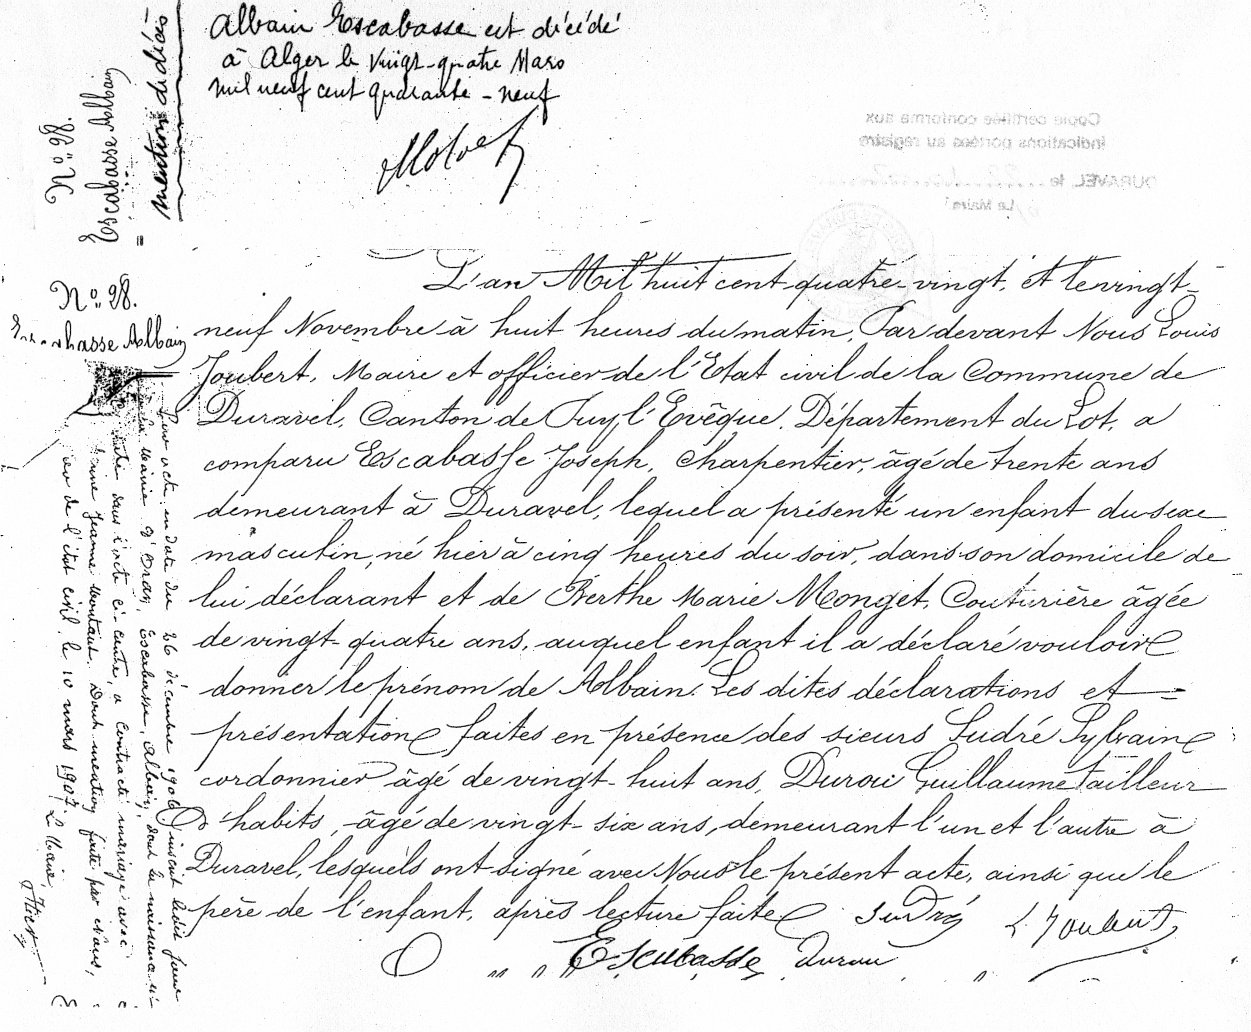 Albain Escabasse est décédé
à Alger le Vingt-quatre Mars
mil neuf cent quarante-neuf
N° 28.
Escabasse Albain
Copie certifiée conforme aux
indications portées au registre
DURAVEL, le
Le Maire
N° 28.
Albain
L'an Mil huit cent quatre-vingt, et le vingt-
neuf Novembre à huit heures du matin, Par devant Nous Louis
Joubert, Maire et officier de l'Etat civil de la Commune de
Duravel, Canton de Puy l'Evêque, Département du Lot, a
comparu Escabasse Joseph, Charpentier, âgé de trente ans
demeurant à Duravel, lequel a présenté un enfant du sexe
masculin, né hier à cinq heures du soir, dans son domicile de
lui déclarant et de Berthe Marie Monget, Couturière âgée
de vingt-quatre ans, auquel enfant il a déclaré vouloir
donner le prénom de Albain. Les dites déclarations et
présentation faites en présence des sieurs Sudré Sylvain
cordonnier âgé de vingt-huit ans, Durou Guillaume tailleur
D'habits, âgé de vingt-six ans, demeurant l'un et l'autre à
Duravel, lesquels ont signé avec Nous le présent acte, ainsi que le
père de l'enfant, après lecture faite Sudré L Joubert
Escabasse Durou
acte en date du 26 décembre 1906
Mairie d'Oran, Escabasse, Albain, dont la naissance
dans l'acte ci-contre, a contracté mariage avec
Jeanne Dont mention faite par Nous,
de l'état civil le 10 mars 1907.
Le Maire